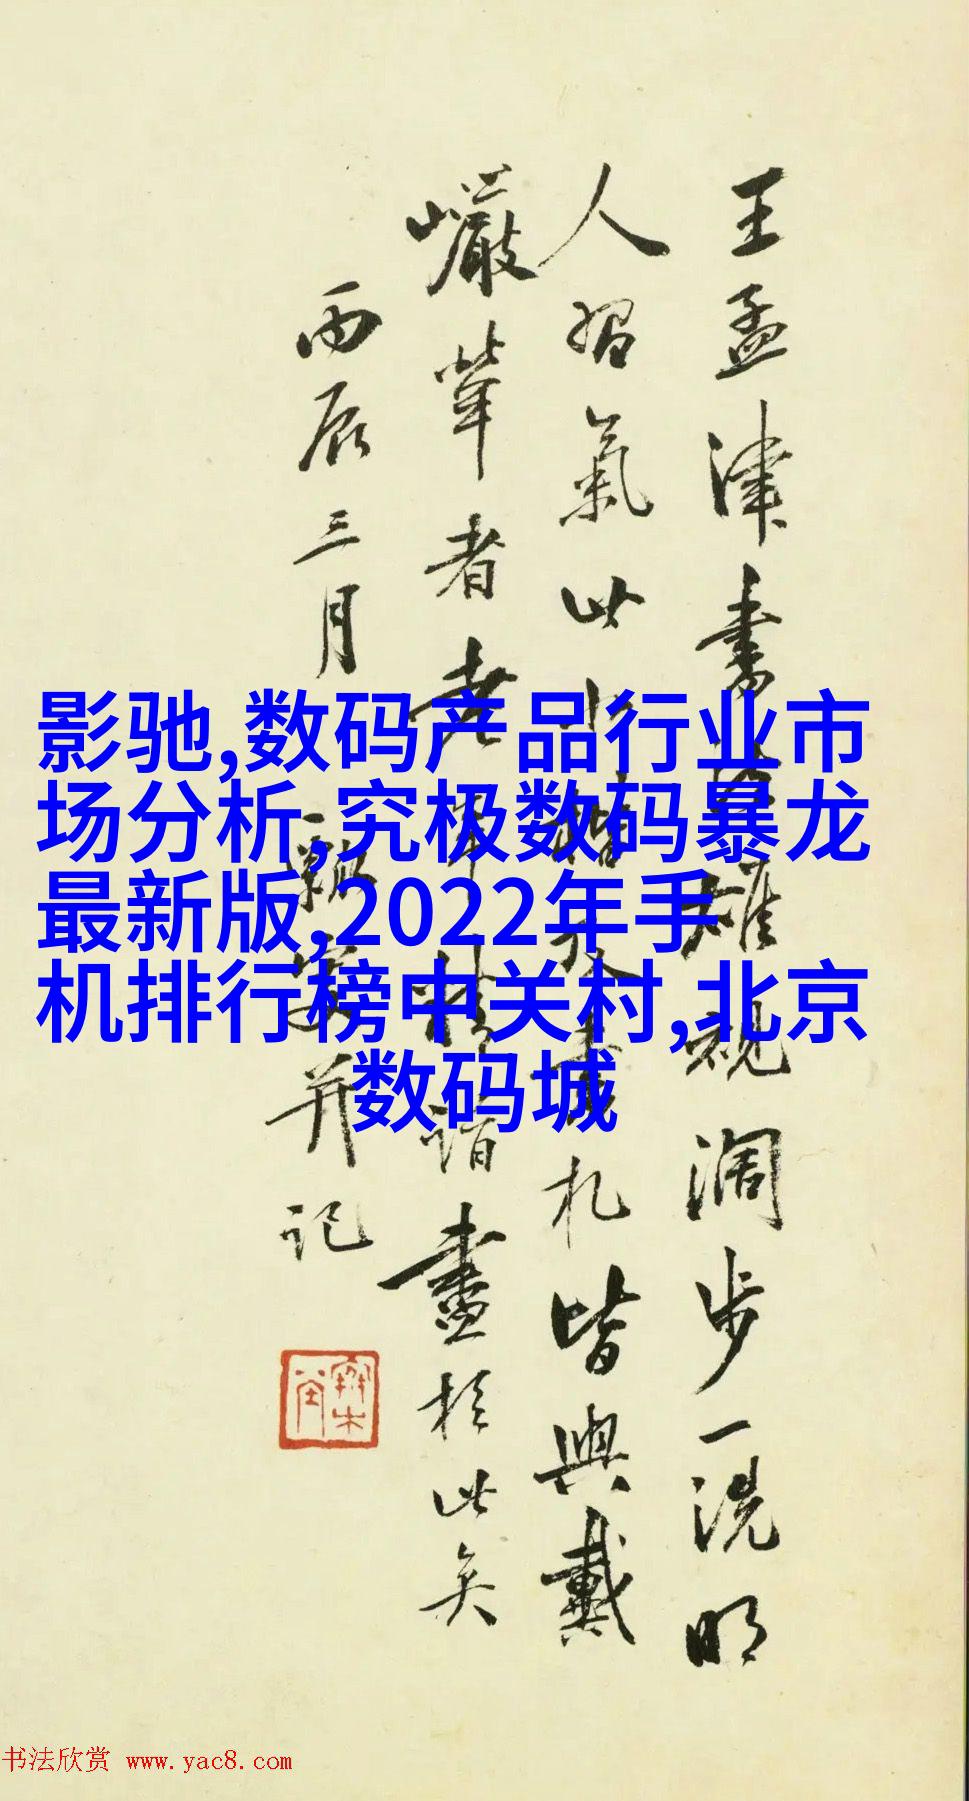 影驰,数码产品行业市
场分析,究极数码暴龙
最新版,2022年手
机排行榜中关村,北京
数码城
王孟津書雄視闊步一洗明
人習氣此小楷
札皆與戴
巖犖者老年精詣畫於此矣
丙辰三月
并記
书法欣赏 www.yac8.com